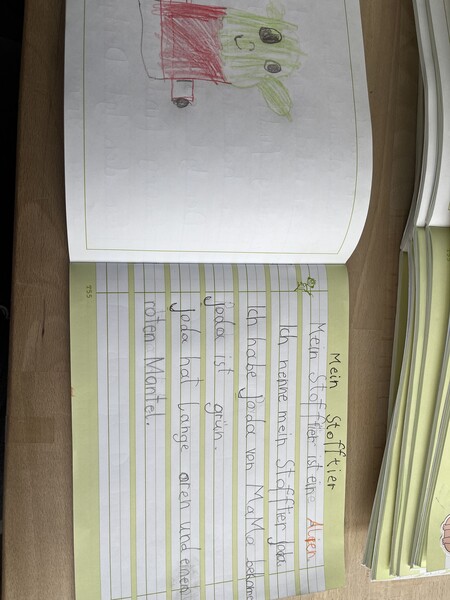 Mein Stofftier
Mein Stofftier ist eine Alien
Ich nenne mein Stofftier Joda
Ich habe Joda von MaMa bekomme
Joda ist grün.
Joda hat Lange oren und einen
roten Mantel.